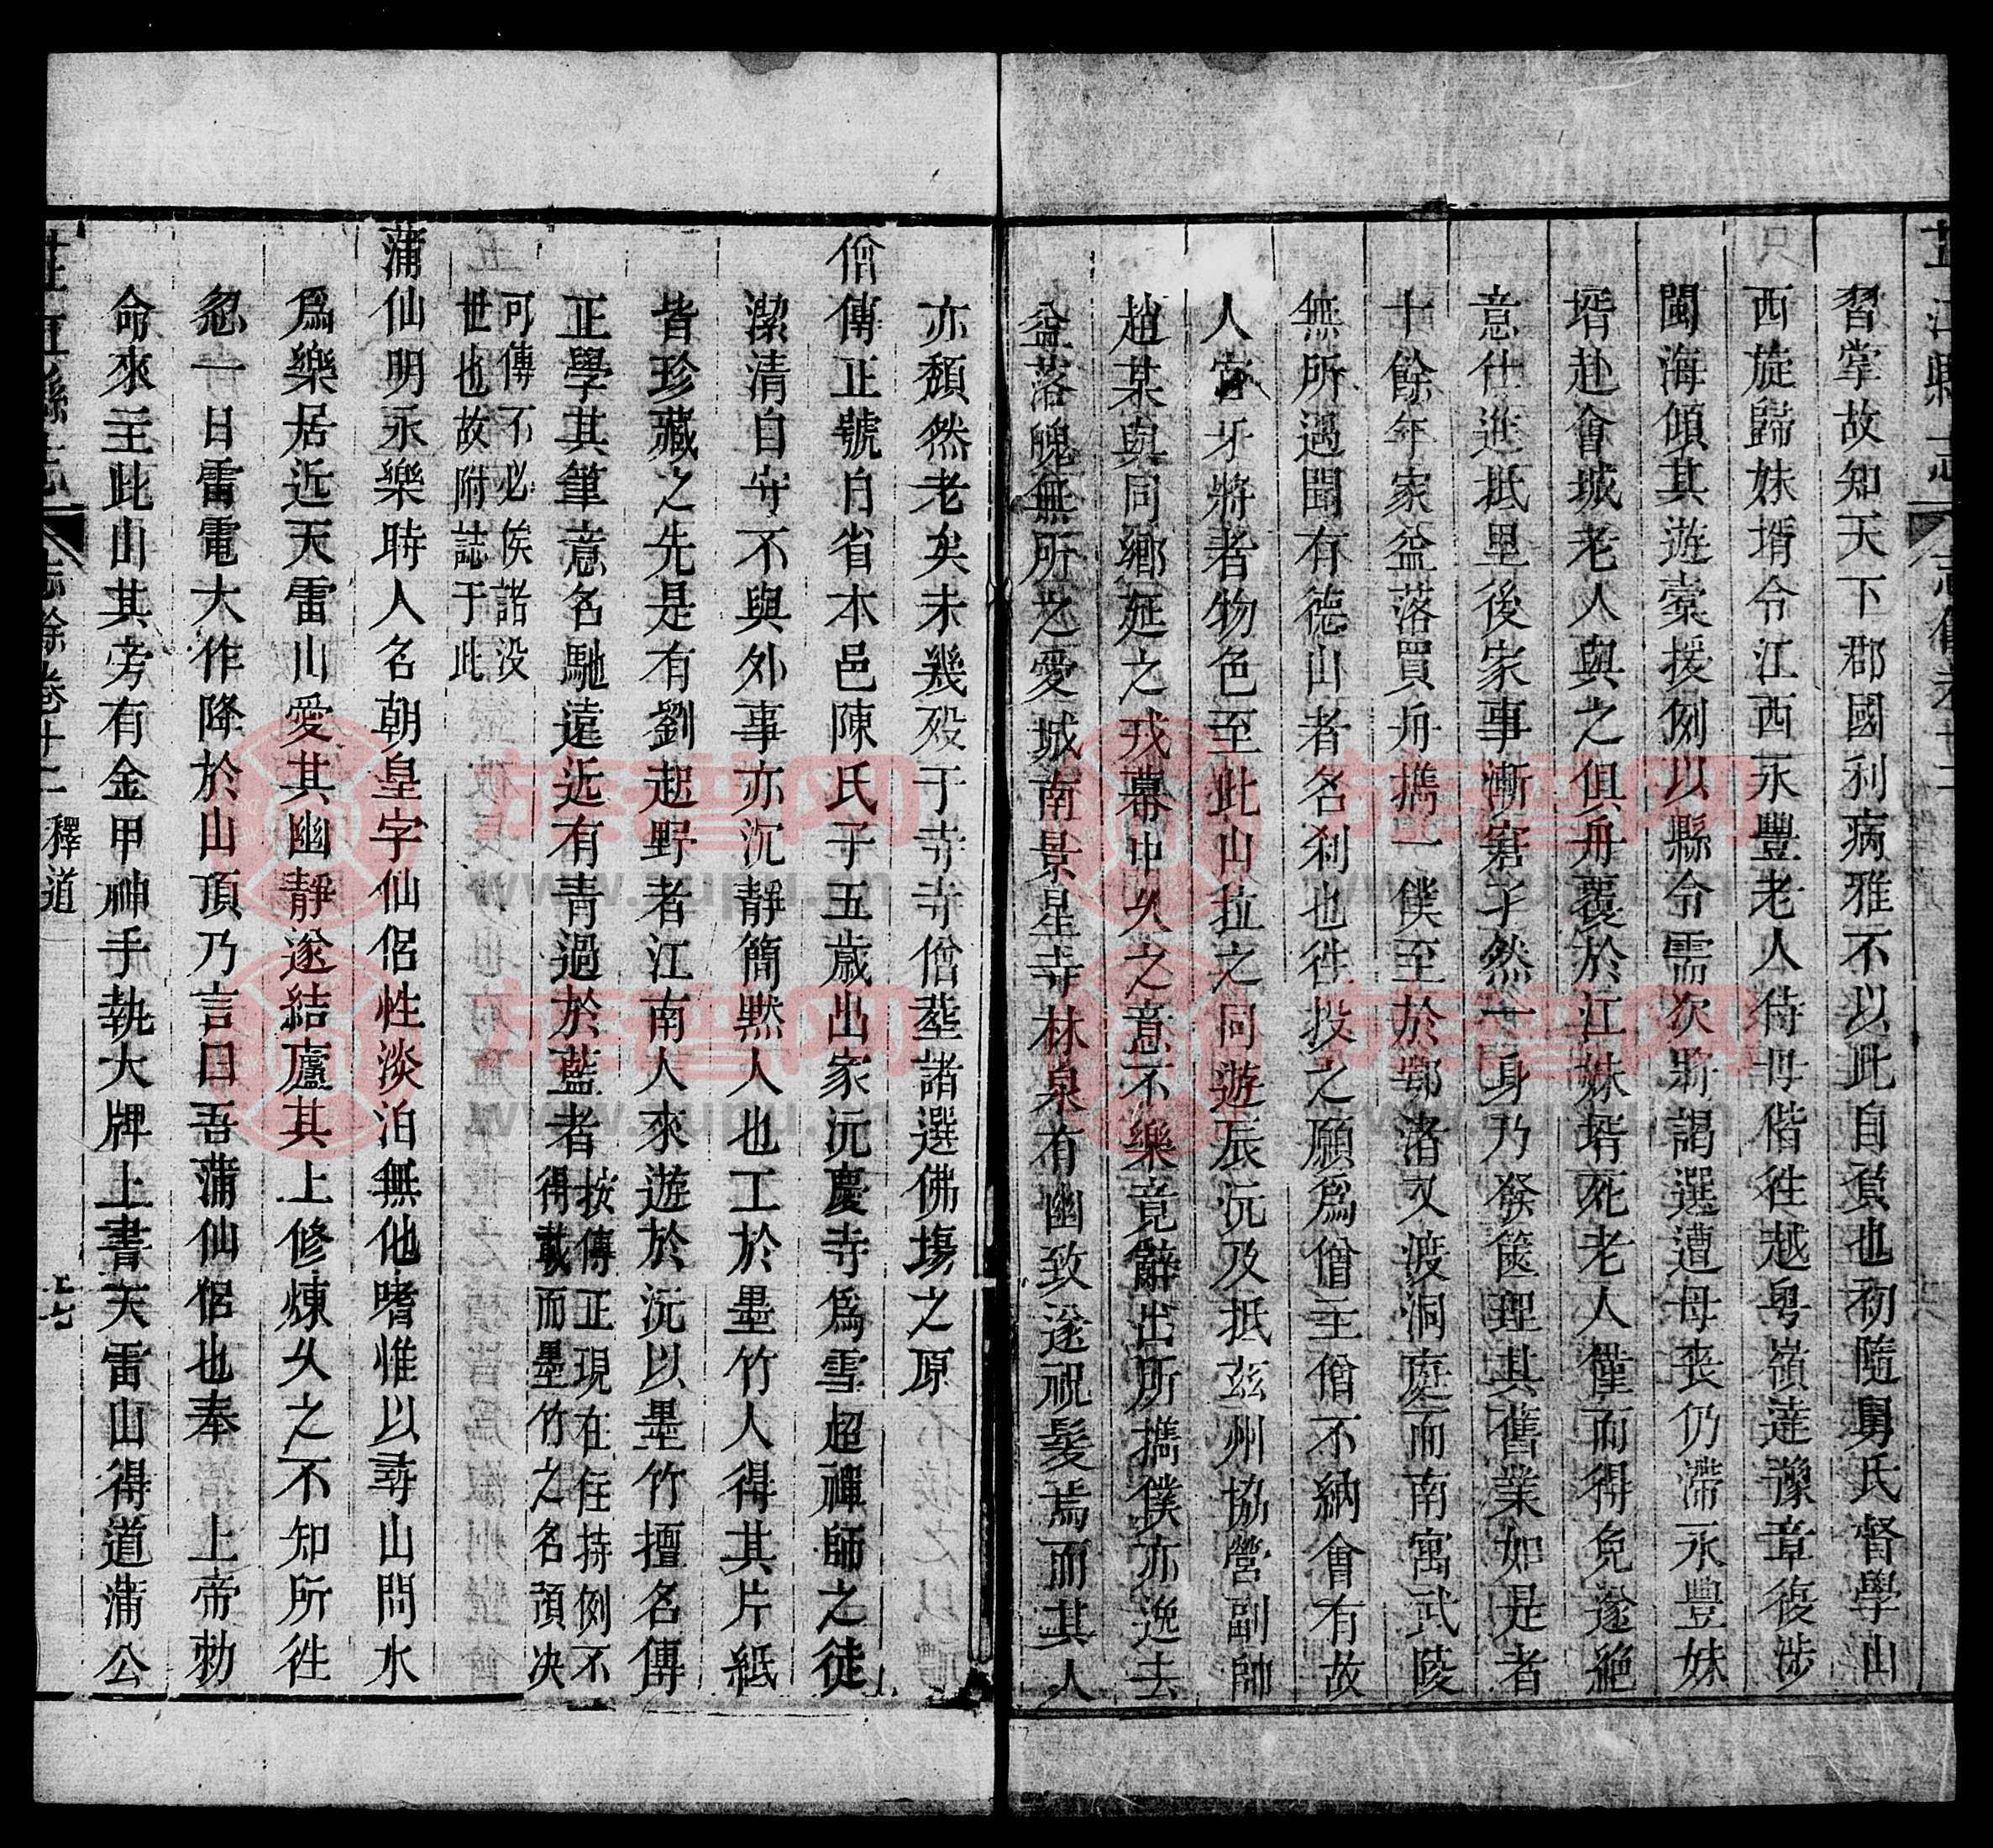 習掌故知天下郡國利病雅不以此自負也初隨舅氏督學山
西旋歸妹壻令江西永豐老人侍母偕徃越粤嶺達豫章後涉
閩海傾其遊橐援例以縣令需次將謁選遭母丧仍滯永豐妹
壻赴會城老人與之俱舟覆於江妹壻死老人僅而得免遂絶
意仕進抵里後家事漸窘孑然一身乃發篋理其舊業如是者
十餘年家益落買舟攜一僕至於鄂渚又渡洞庭而南寓武陵
無所遇聞有德山者名刹也徃投之願爲僧主僧不納會有故
人官牙將者物色至此山拉之同遊辰沅及抵兹州協營副帥
趙某與同鄉延之戎幕中久之意不樂竟辭出所攜僕亦逸去
益落魄無所之愛城南景星寺林泉有幽致遂祝髮焉而其人
亦頽然老矣未幾殁于寺寺僧塟諸選佛塲之原
僧傳正號自省本邑陳氏子五歲出家沅慶寺爲雪超禪師之徒
潔清自守不與外事亦沉靜簡黙人也工於墨竹人得其片紙
皆珍藏之先是有劉起野者江南人來遊於沅以墨竹擅名傳
正學其筆意名馳遠近有青過於藍者按傳正現在住持例不
得載而墨竹之名頗决
可傳不必俟諸没
世也故附誌于此
蒲仙明永樂時人名朝皇字仙侣性淡泊無他嗜惟以尋山問水
爲樂居近天雷山愛其幽靜遂結廬其上修煉久之不知所徃
忽一日雷電大作降於山頂乃言曰吾蒲仙侣也奉上帝勅
命來主此山其旁有金甲神手執大牌上書天雷山得道蒲公
芷江縣志
志餘卷十二
釋道